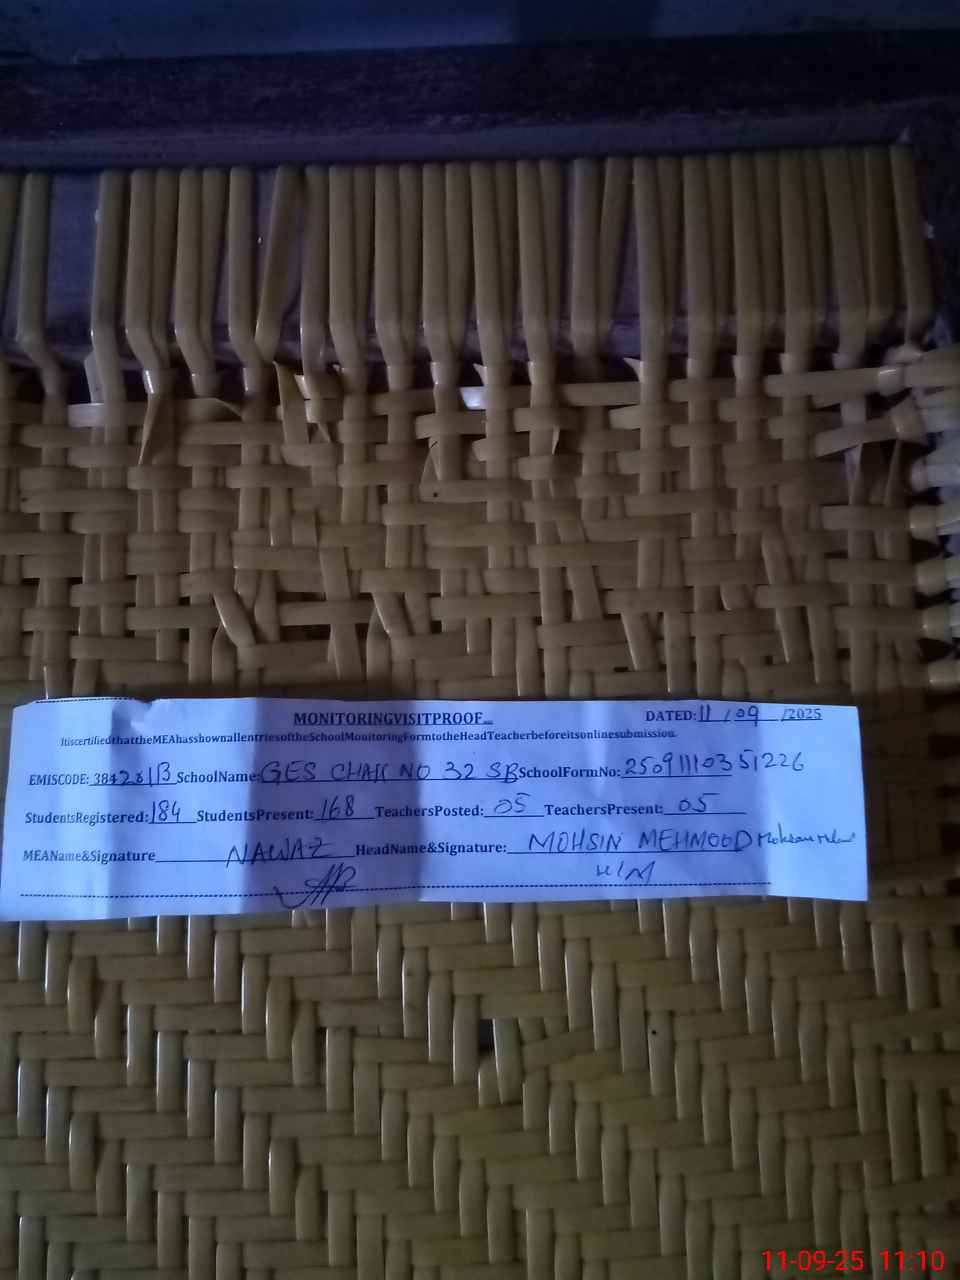 MONITORINGVISITPROOF
DATED: 11 / 09 /2025
ItiscertifiedthattheMEAhasshownallentriesoftheSchoolMonitoringFormtotheHeadTeacherbeforeitsonlinesubmission.
EMISCODE: SchoolName: GES CHAK NO 32 SB SchoolFormNo: 25091110351226
StudentsRegistered: 184 StudentsPresent: 168 TeachersPosted: 05 TeachersPresent: 05
MEAName&Signature NAWAZ HeadName&Signature: MOHSIN MEHMOOD
H/M
11-09-25 11:10